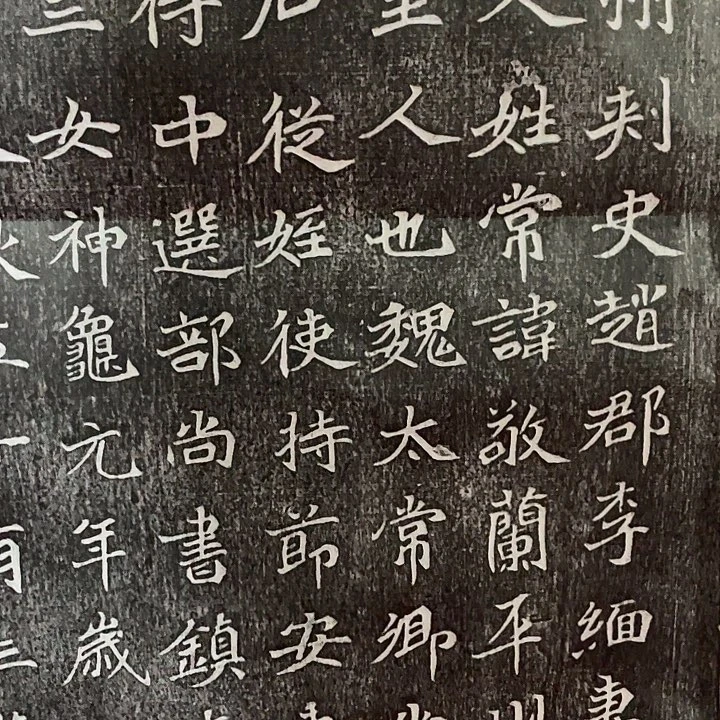 刺史趙郡李緬妻
人姓常諱敬蘭平州
人也魏太常卿
石從姪使持節安
得中選部尚書鎮
三女神龜元年歲